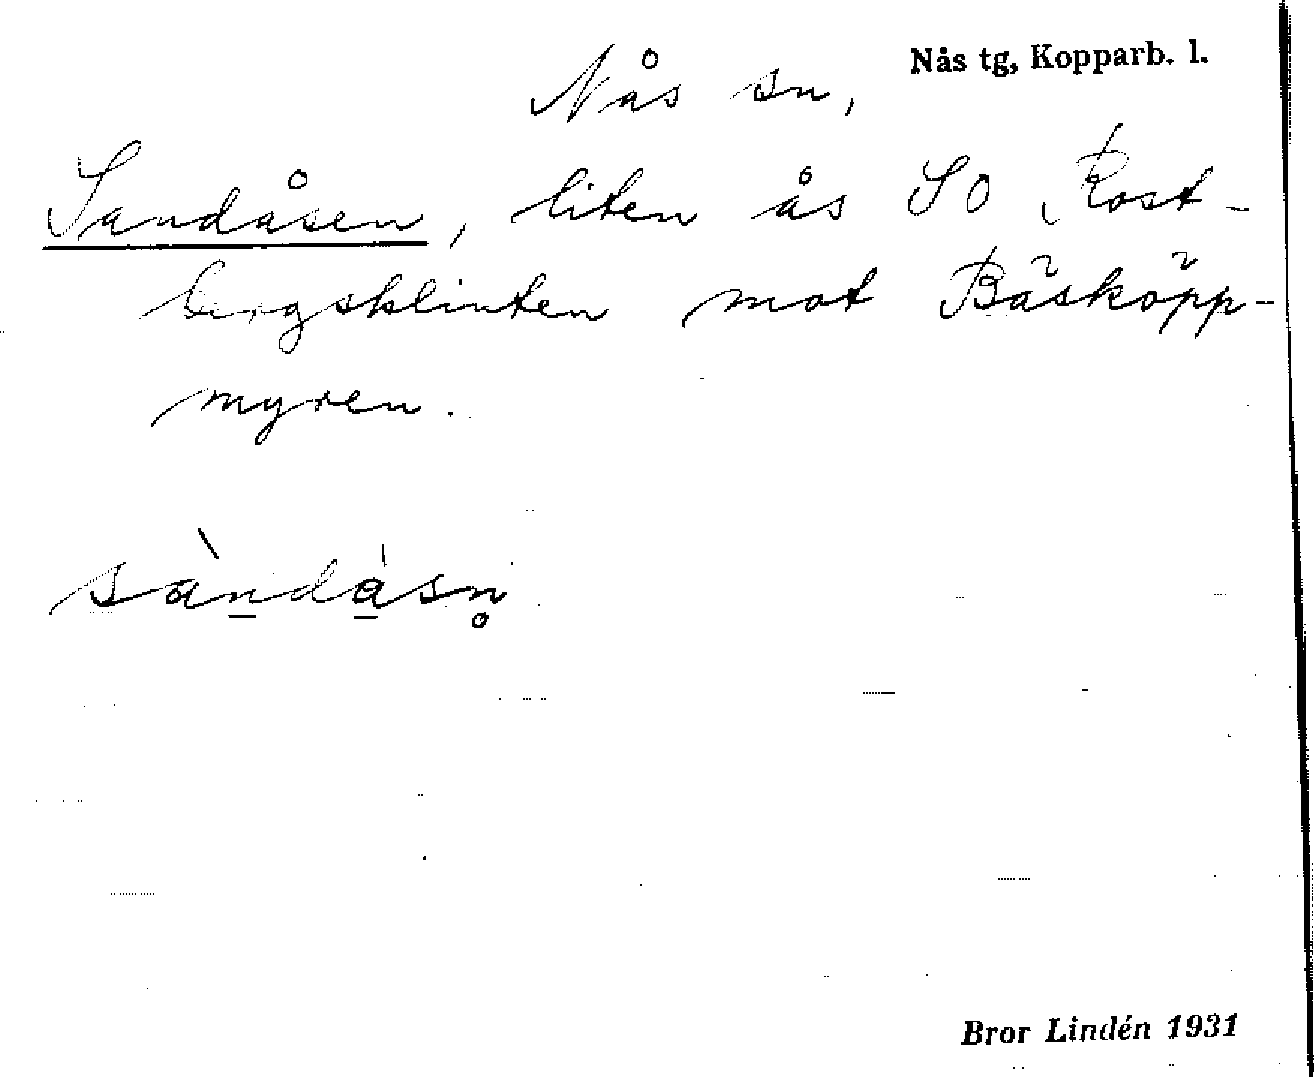 Nås sn, Nås tg, Kopparb. l.
Sandåsen, liten ås SO Rost-
bergsklinten mot Bäsköpp-
myren.
sàndåsn̥
Bror Lindén 1931